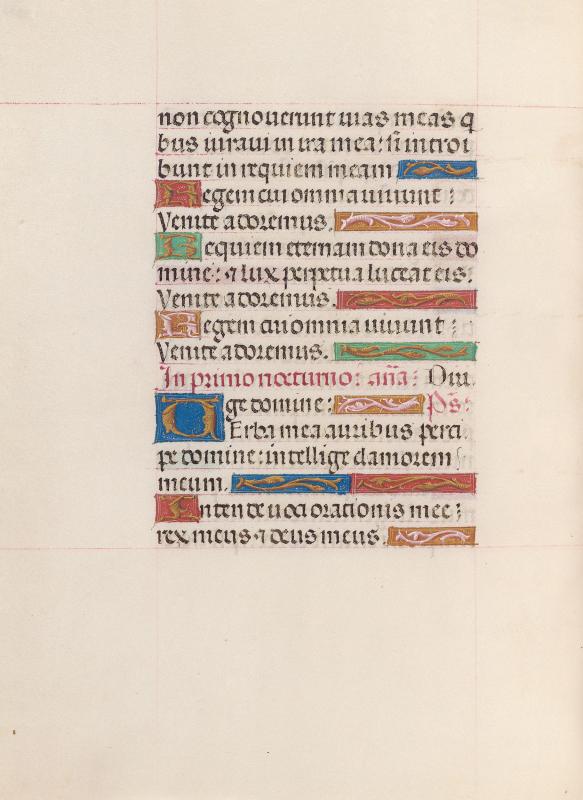 non cognoverunt vias meas q
bus iuravi in ira mea: si introi
bunt in requiem meam
Regem cui omnia vivunt:
Venite adoremus.
Requiem eternam dona eis do
mine: et lux perpetua luceat eis:
Venite adoremus.
Regem cui omnia vivunt:
Venite adoremus.
In primo nocturno: aña: Diri
ge domine: Ps:
Verba mea auribus perci
pe domine: intellige clamorem
meum.
Intende voci orationis mee:
rex meus et deus meus.